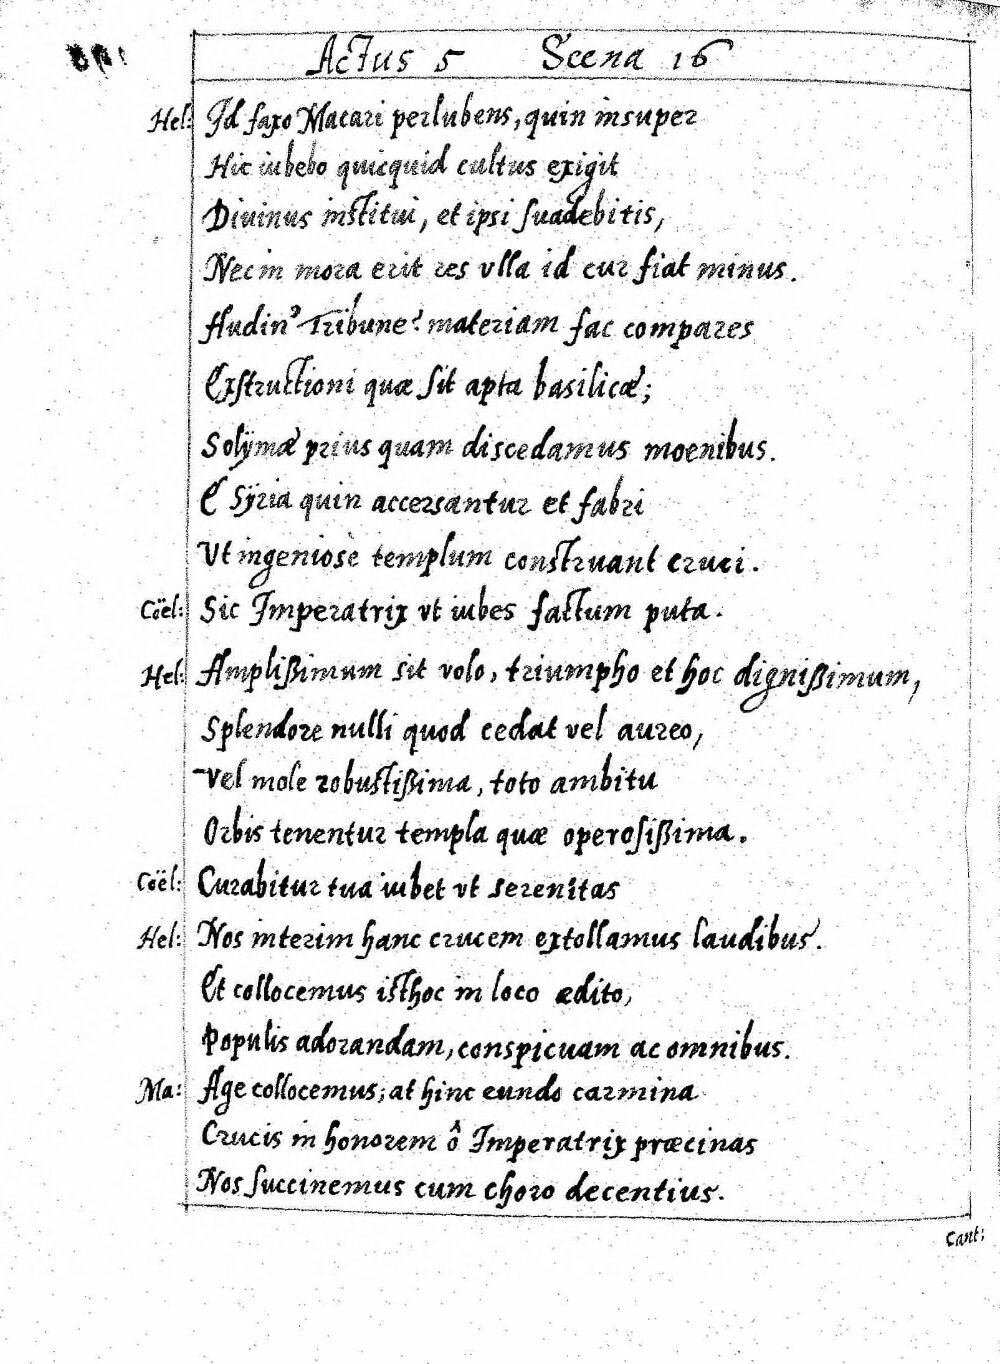 Actus 5 Scena 16
Hel: Id faxo Macari perlubens, quin insuper
Hic iubebo quicquid cultus exigit
Diuinus institui, et ipsi suadebitis,
Nec in mora erit res vlla id cur fiat minus.
Audin' Tribune? materiam fac compares
Exstructioni quæ sit apta basilicæ;
Solÿmæ prius quam discedamus moenibus.
E Sÿria quin accersantur et fabri
Vt ingeniosè templum construant cruci.
Cöel: Sic Imperatrix vt iubes factum puta.
Hel: Amplißimum sit volo, triumpho et hoc dignißimum,
Splendore nulli quod cedat vel aureo,
Vel mole robustißima, toto ambitu
Orbis tenentur templa quæ operosißima.
Cöel: Curabitur tua iubet vt serenitas
Hel: Nos interim hanc crucem extollamus laudibus.
Et collocemus isthoc in loco ædito,
Populis adorandam, conspicuam ac omnibus.
Ma: Age collocemus; at hinc eundo carmina
Crucis in honorem ô Imperatrix præcinas
Nos succinemus cum choro decentius.
Cant: